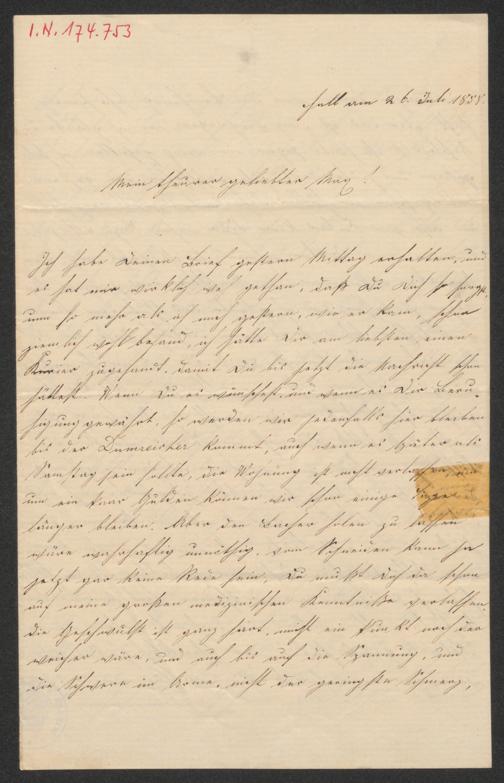 I.N. 174.753
Hall am 26. Juli 1858.
Mein theurer geliebter Max!
Ich habe Deinen Brief gestern Mittag erhalten, und
es hat mir wirklich weh gethan, daß Du Dich so sorgst,
um so mehr als ich mich gestern, wie er kam, schon
ziemlich wohl befand, ich hätte Dir am liebsten einen
Kurier zugesandt, damit Du bis jetzt die Nachricht schon
hättest. Wenn Du es wünschest, und wenn es Dir Beru-
higung gewährt, so werden wir jedenfalls hier bleiben
bis der Dumreicher kommt, auch wenn es später als
Samstag sein sollte, die Wohnung ist nicht
um ein paar Gulden können wir schon einige Tage
länger bleiben. Aber den Bacher holen zu lassen
wäre wahrhaftig unnöthig, vom Schneiden kann ja
jetzt gar keine Rede sein, Du mußt Dich da schon
auf meine großen medizinischen Kenntniße verlassen,
die Geschwulst ist ganz hart, nicht ein Punkt noch der
weicher wäre, und auch bis auf die Spannung, und
die Schwere im Arme, nicht der geringste Schmerz,